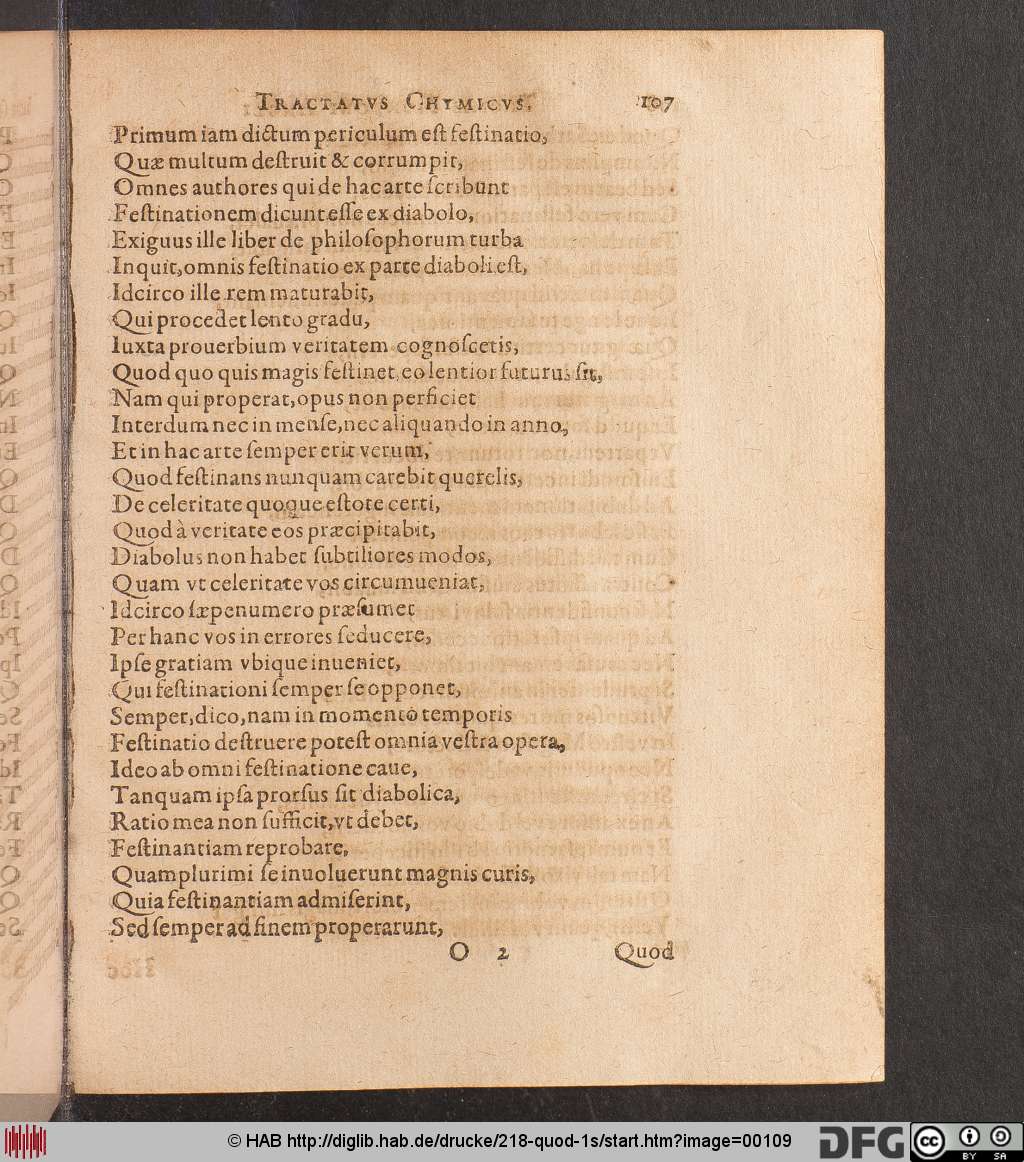 TRACTATVS CHYMICVS. 107
Primum iam dictum periculum eſt feſtinatio,
Quæ multum deſtruit & corrumpit,
Omnes authores qui de hac arte ſcribunt
Feſtinationem dicunt eſſe ex diabolo,
Exiguus ille liber de philoſophorum turba
Inquit, omnis feſtinatio ex parte diaboli eſt,
Idcirco ille rem maturabit,
Qui procedet lento gradu,
Iuxta prouerbium veritatem cognoſcetis,
Quod quo quis magis feſtinet, eo lentior futurus ſit,
Nam qui properat, opus non perficiet
Interdum nec in menſe, nec aliquando in anno,
Et in hac arte ſemper erit verum,
Quod feſtinans nunquam carebit querelis,
De celeritate quoque eſtote certi,
Quod à veritate eos præcipitabit,
Diabolus non habet ſubtiliores modos,
Quam vt celeritate vos circumueniat,
Idcirco ſæpenumero præſumet
Per hanc vos in errores ſeducere,
Ipſe gratiam vbique inueniet,
Qui feſtinationi ſemper ſe opponet,
Semper, dico, nam in momento temporis
Feſtinatio deſtruere poteſt omnia veſtra opera,
Ideo ab omni feſtinatione caue,
Tanquam ipſa prorſus ſit diabolica,
Ratio mea non ſufficit, vt debet,
Feſtinantiam reprobare,
Quamplurimi ſe inuoluerunt magnis curis,
Quia feſtinantiam admiſerint,
Sed ſemper ad finem properarunt,
O 2 Quod
© HAB http://diglib.hab.de/drucke/218-quod-1s/start.htm?image=00109
DFG cc BY SA